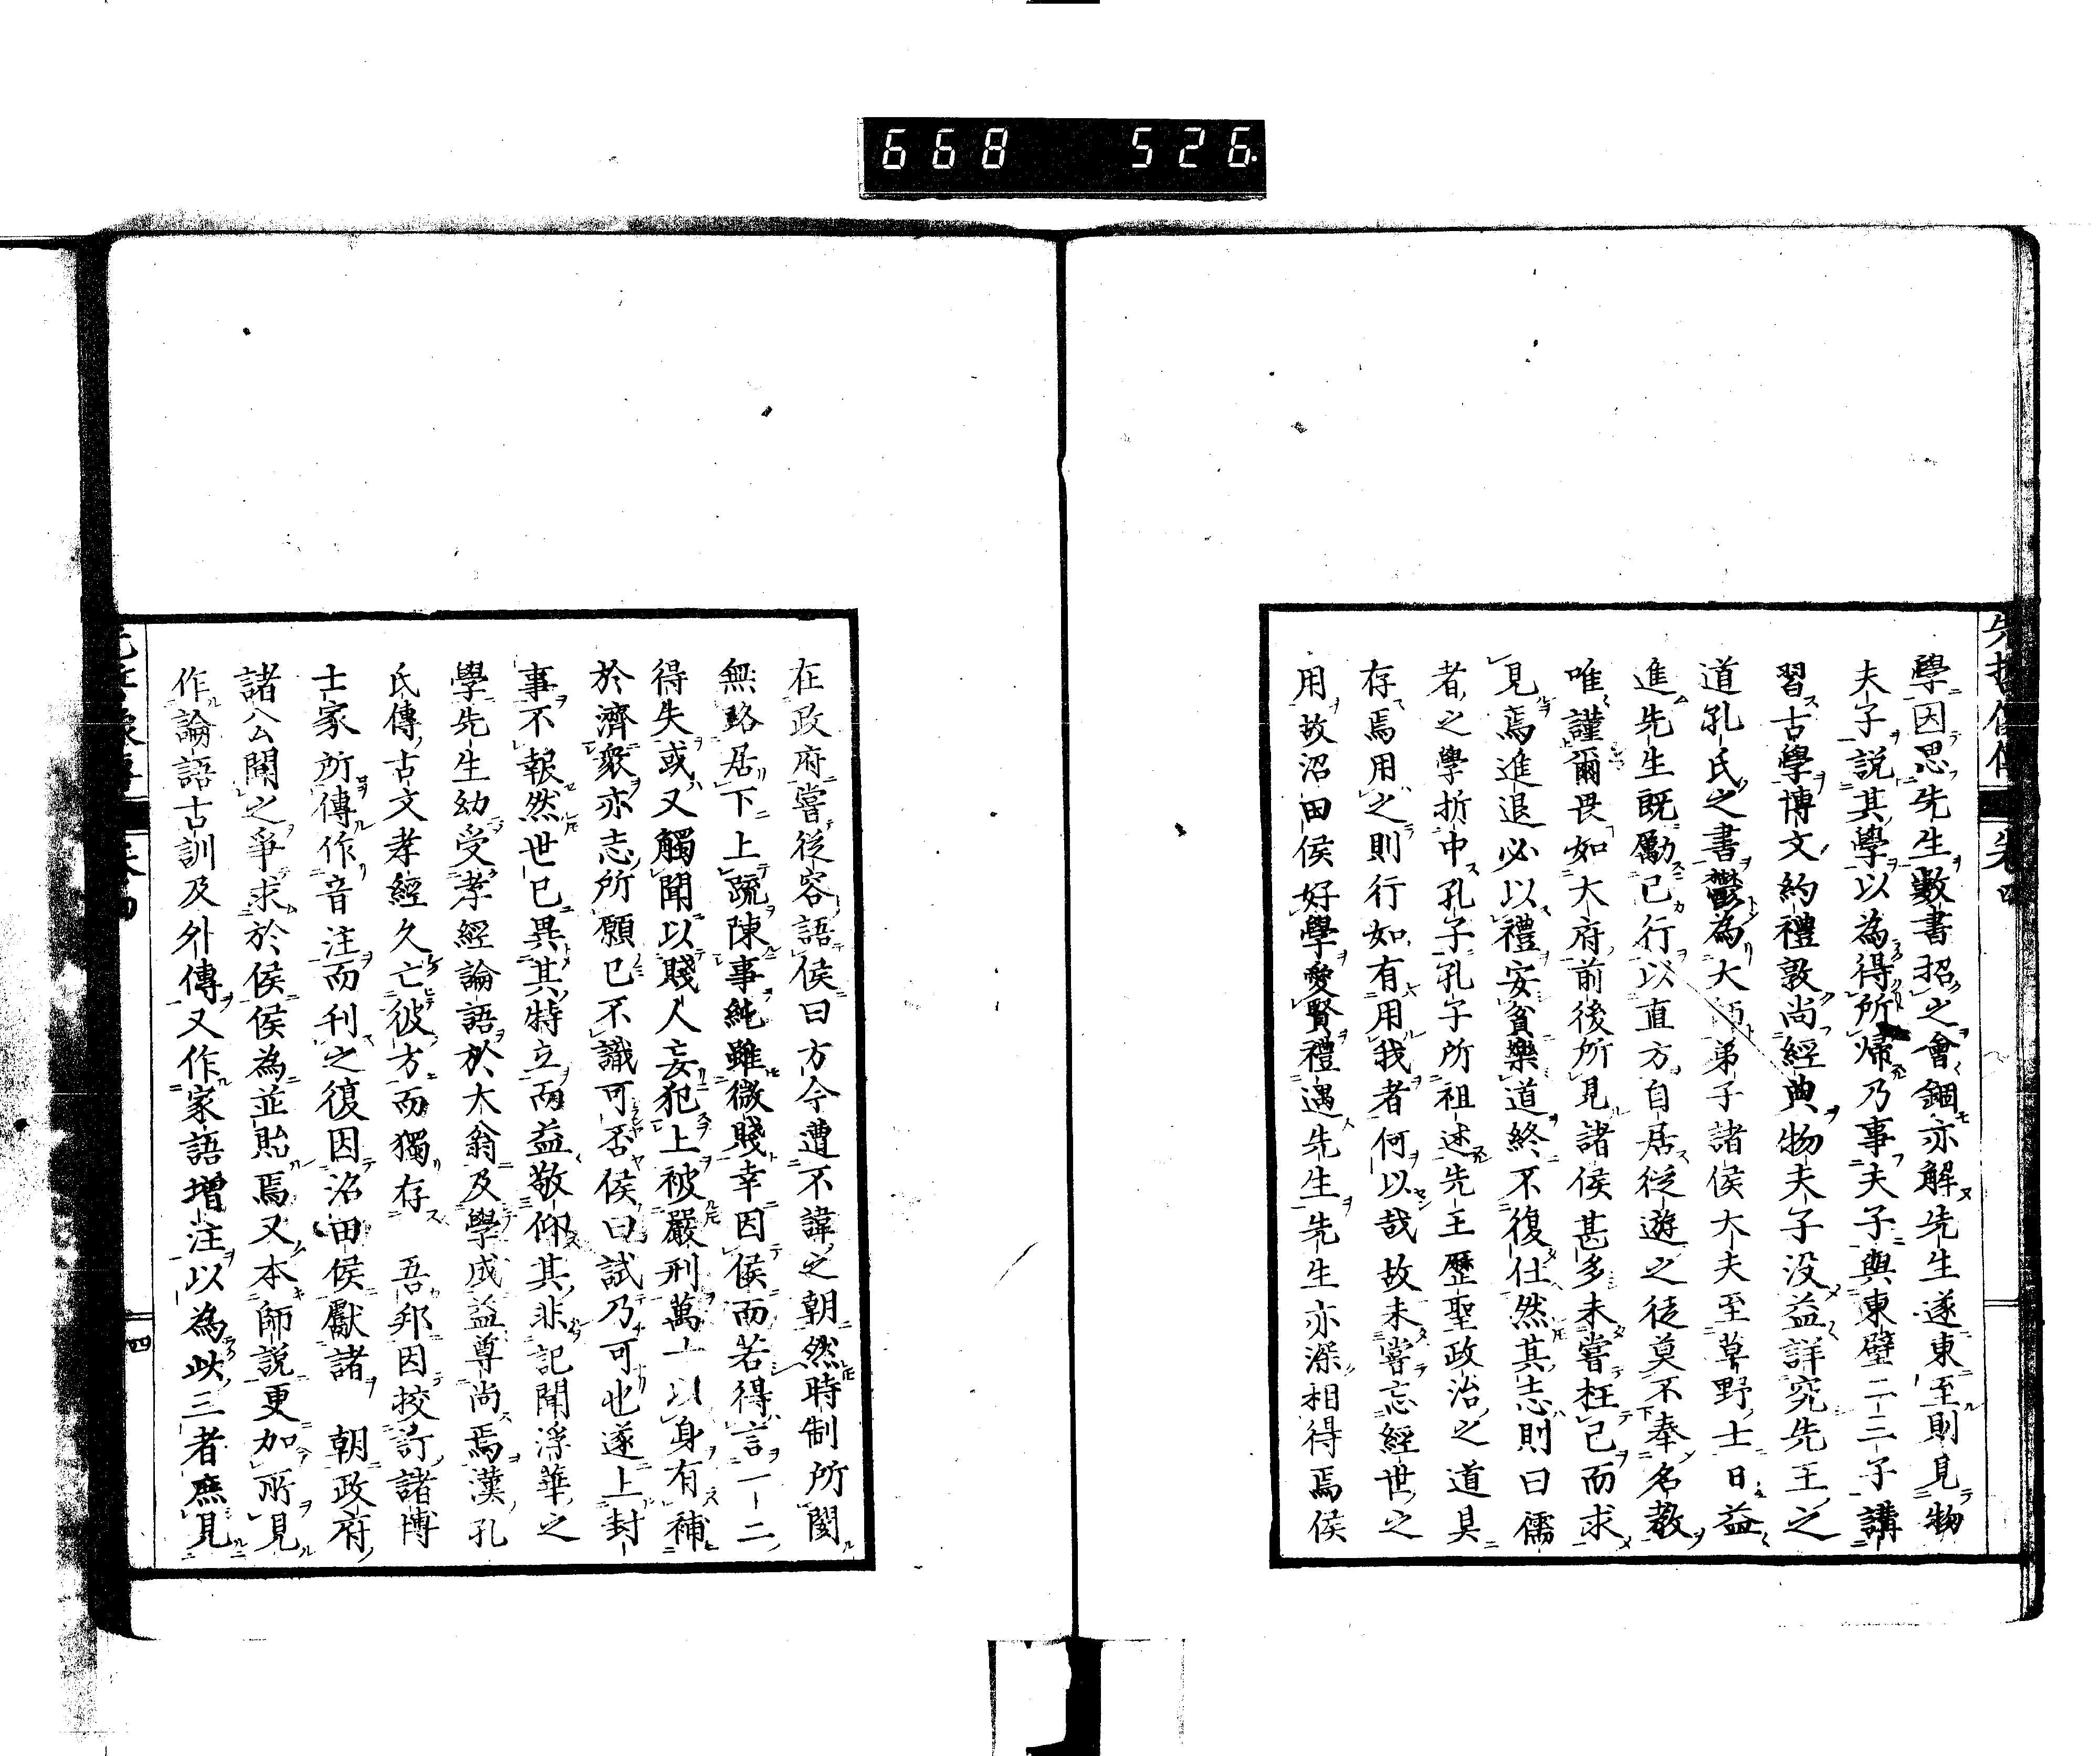 668 526
學因思先生數書招之會錮亦解先生遂東至則見物
夫子説其學以為得所歸乃事夫子與東壁二三子講
習古學博文約禮敦尚經典物夫子没益詳究先王之
道孔氏之書鬱為大師弟子諸侯大夫至草野士日益
進先生既勵己行以直方自居從遊之徒莫不奉名教
唯謹爾畏如大府前後所見諸侯甚多未嘗枉己而求
見焉進退必以禮安貧樂道終不復仕然其志則曰儒
者之學折中孔子孔子所祖述先王歷聖政治之道具
存焉用之則行如有用我者何以哉故未嘗忘經世之
用故沼田侯好學愛賢禮遇先生先生亦深相得焉侯
在政府嘗從容語侯曰方今遭不諱之朝然時制所閡
無路居下上疏陳事純雖微賤幸因侯而若得言一二
得失或又觸聞以賤人妄犯上被嚴刑萬一以身有補
於濟衆亦志所願已不識可否侯曰試乃可也遂上封
事不報然世已異其特立而益敬仰其非記聞浮華之
學先生幼受孝經論語於大翁及學成益尊尚焉漢孔
氏傳古文孝經久亡彼方而獨存 吾邦因挍訂諸博
士家所傳作音注而刊之復因沼田侯獻諸 朝政府
諸公聞之爭求於侯侯為並貽焉又本師説更加所見
作論語古訓及外傳又作家語增注以為此三者庶見
四